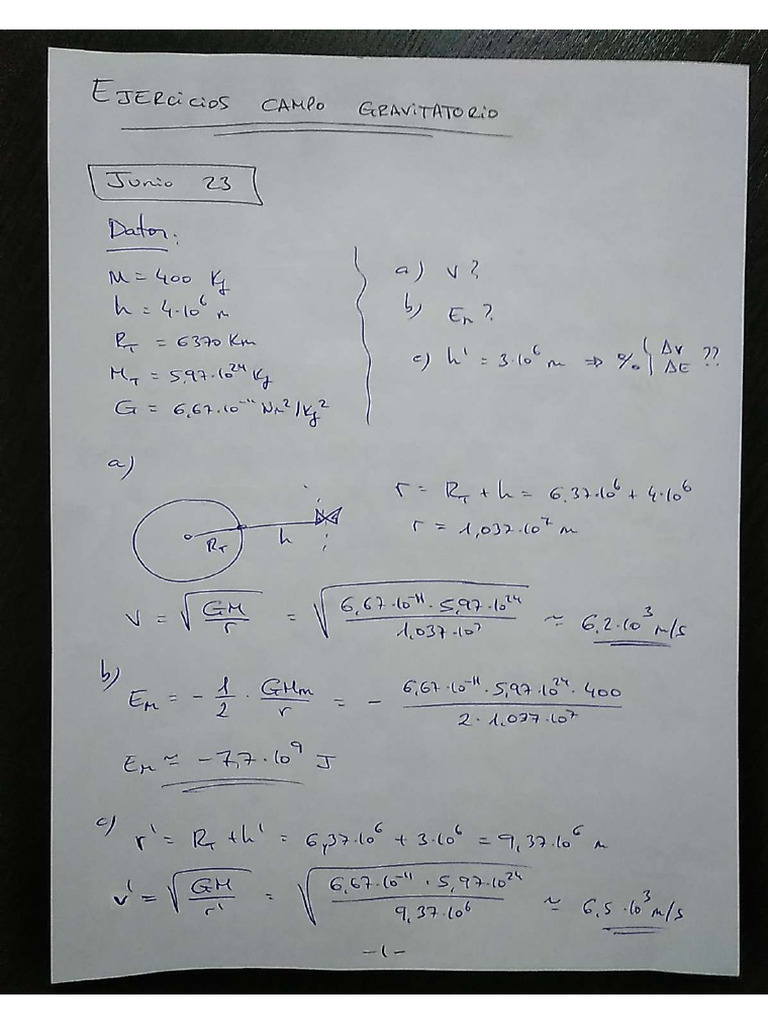 EJERCICIOS CAMPO GRAVITATORIO
Junio 23
Datos:
M = 400 Kg
h = 4·10⁶ m
R_T = 6370 Km
M_T = 5,97·10²⁴ Kg
G = 6,67·10⁻¹¹ Nm²/Kg²
a) v?
b) E_m?
c) h' = 3·10⁶ m ⇒ % { Δv ΔE ??
a)
R_T h
r = R_T + h = 6,37·10⁶ + 4·10⁶
r = 1,037·10⁷ m
v = √(GM/r) = √(6,67·10⁻¹¹·5,97·10²⁴/1,037·10⁷) ≃ 6,2·10³ m/s
b)
E_m = -1/2 · GMm/r = - 6,67·10⁻¹¹·5,97·10²⁴·400/2·1,037·10⁷
E_m ≃ -7,7·10⁹ J
c) r' = R_T + h' = 6,37·10⁶ + 3·10⁶ = 9,37·10⁶ m
v' = √(GM/r') = √(6,67·10⁻¹¹·5,97·10²⁴/9,37·10⁶) ≃ 6,5·10³ m/s
-1-